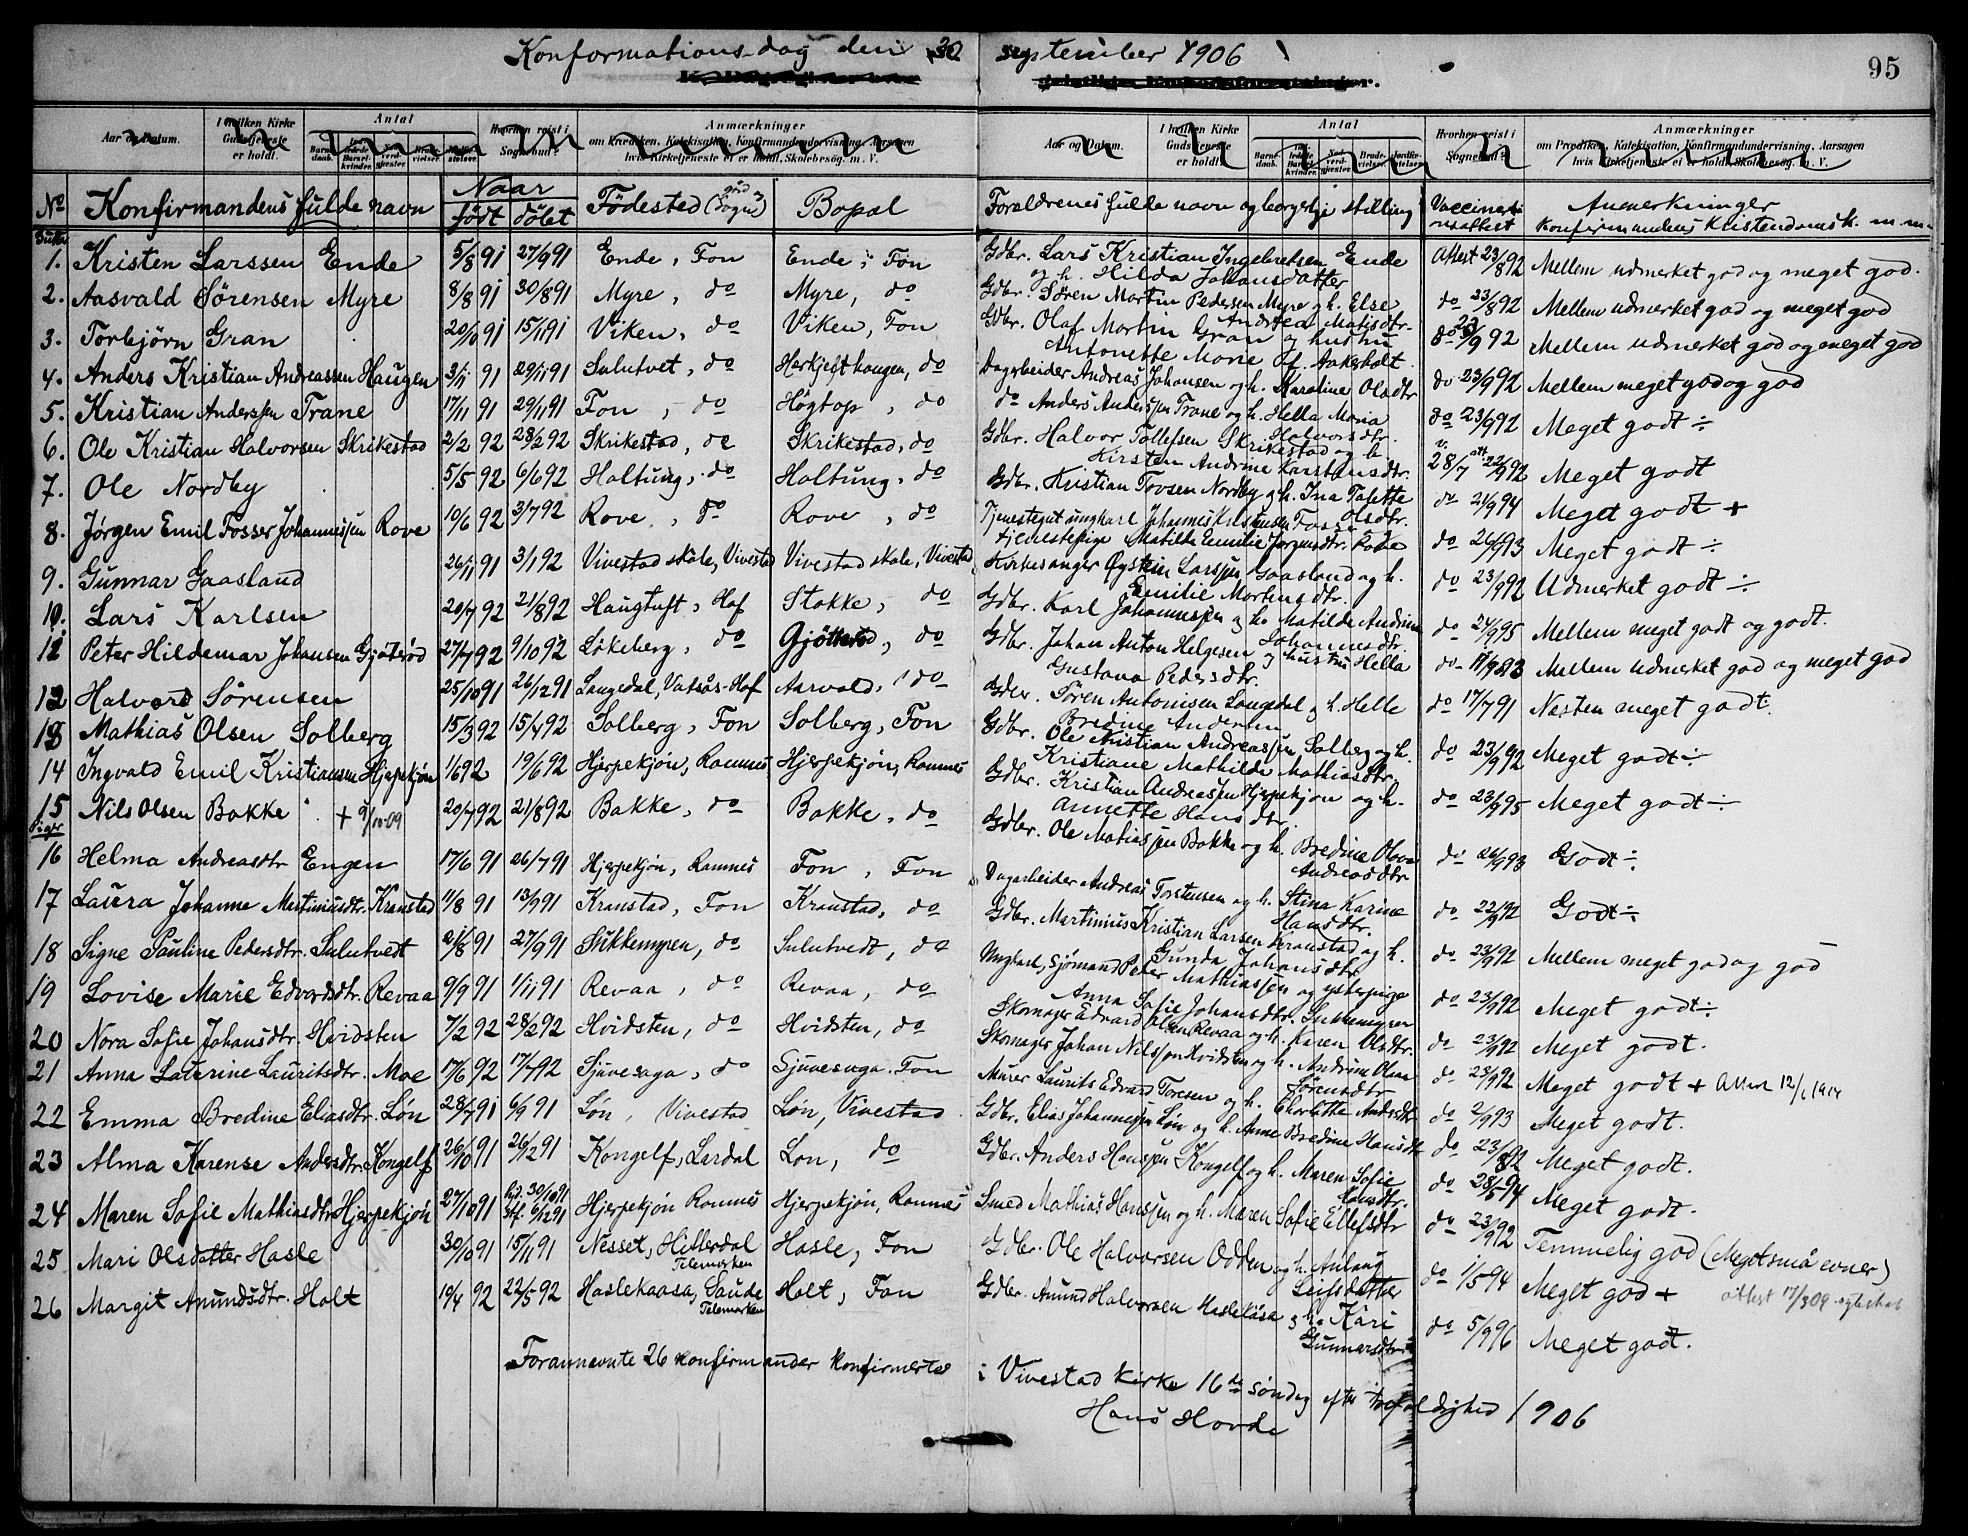 Konformations-dag den 30 september 1906
95
Aar og Datum. I hvilken Kirke Gudstjeneste er holdt. Antal Hvorhen reist i Sognebud? Anmærkninger om Prædiken, Katekisation, Konfirmandundervisning, Aarsagen hvis Kirketjeneste ei er holdt, Skolebesøg m. V.
Aar og Datum. I hvilken Kirke Gudstjeneste er holdt. Antal Hvorhen reist i Sognebud? Anmærkninger om Prædiken, Katekisation, Konfirmandundervisning, Aarsagen hvis Kirketjeneste ei er holdt, Skolebesøg m. V.
No Konfirmandens fulde navn Naar født døbt Födested (gård Sogn) Bopæl Forældrenes fulde navn og borgerlige stilling Vaccinationsattest Anmerkninger konfirmandens kristendomsk. m.m.
Gutter
1. Kristen Larssen Ende 5/8 91 27/9 91 Ende, Fon Ende, Fon Gdbr. Lars Kristian Ingebretsen Ende og h. Hilda Johansdatter Attest 23/8 92 Mellem udmerket god og meget god.
2. Aasvald Sörensen Myre 8/8 91 30/8 91 Myre, do Myre, do Gdbr. Søren Martin Pedersen Myre og h. Else Andrea Matisdtr. do 23/8 92 Mellem udmerket god og meget god
3. Torbjörn Gran 20/10 91 15/11 91 Viken, do Viken, Fon Gdbr. Olaf Martin Gran og hustru Antonette Marie af Ankerholt do 23/9 92 Mellem udmerket god og meget god
4. Anders Kristian Andreassen Haugen 3/11 91 29/11 91 Sulutvet, do Harkjelthaugen, do Dagarbeider Andreas Johansen og h. Karoline Olsdtr do 23/9 92 Mellem meget god og god
5. Kristian Andersen Trane 17/11 91 29/11 91 Fon, do Högtop, do do Anders Andersen Trane og h. Hella Maria Halvorsdtr. do 23/9 92 Meget godt ÷
6. Ole Kristian Halvorsen Skrikestad 2/2 92 28/2 92 Skrikestad, do Skrikestad, do Gdbr. Halvor Tollefsen Skrikestad og h. Kirsten Andrine Karstensdtr. v. 28/7 att. 22/9 92 Meget godt
7. Ole Nordby 5/5 92 6/6 92 Holtung, do Holtung, do Gdbr. Kristian Tovsen Nordby og h. Ina Talette Olsdtr. do 21/9 94 Meget godt +
8. Jørgen Emil Fosser Johannessen Rove 10/6 92 3/7 92 Rove, do Rove, do Tjenestegut ungkarl Johannes Kristensen Foss tjenestepige Matilde Emilie Jørgensdtr. Rove do 26/9 93 Meget godt ÷
9. Gunnar Gaasland 26/11 91 3/1 92 Vivestad skole, Vivestad Vivestad skole, Vivestad Kirkesanger Øystein Larssen Gaasland og h. Emilie Mortensdtr. do 23/9 92 Udmerket godt ÷
10. Lars Karlsen 20/7 92 21/8 92 Haugtuft, Hof Stokke, do Gdbr. Karl Johannessen og h. Matilde Andrine Johannesdtr. do 24/9 95 Mellem meget godt og godt.
11 Peter Hildemar Johansen Gjøterød 27/7 92 9/10 92 Løkeberg, do do Gdbr. Johan Anton Helgesen og hustru Hella Gustava Pedersdtr. do 11/9 83 Mellem udmerket god og meget god
12 Halvard Sörensen 25/10 91 26/12 91 Langedal, Vatsås-Hof Aarvold, do Gdbr. Søren Antonisen Langedal og h. Helle Bredine Andersen do 17/7 91 Næsten meget godt.
13 Mathias Olsen Solberg 15/3 92 15/4 92 Solberg, Fon Solberg, Fon Gdbr. Ole Kristian Andreassen Solberg og h. Kristiane Mathilde Mathiasdtr. do 23/9 92 Meget godt ÷
14 Ingvald Emil Kristiansen Hjerpekjøn 1/6 92 19/6 92 Hjerpekjøn, Ramnes Hjerpekjøn, Ramnes Gdbr. Kristian Andreassen Hjerpekjøn og h. Annette Hansdtr. do 23/9 95 Meget godt ÷
15 Nils Olsen Bakke + 9/10-09 20/7 92 21/8 92 Bakke, do Bakke, do Gdbr. Ole Matiassen Bakke og h. Bredine Olava Andreasdtr do 26/9 93 Godt ÷
Piger
16 Helma Andreasdtr Engen 17/6 91 26/7 91 Hjerpekjøn, Ramnes Fon, Fon Dagarbeider Andreas Torstensen og h. Stina Karine Hansdtr. do 22/9 92 Godt ÷
17 Laura Johanne Martiniusdtr. Kranstad 11/8 91 13/9 91 Kranstad, Fon Kranstad, do Gdbr. Martinius Kristian Larsen Kranstad og h. Gunda Johansdtr do 23/9 92 Mellem meget god og god
18 Signe Pauline Pedersdtr. Sulutvedt 21/8 91 27/9 91 Sukkemyren, do Sulutvedt, do Ungkarl, Sjömand Peter Mathiassen og pige Anna Sofie Johansdtr. Sukkemyren do 23/9 92 Meget godt ÷
19 Lovise Marie Edvardsdtr. Revaa 9/9 91 1/11 91 Revaa, do Revaa, do Skomager Edvard Olsen Revaa og h. Karen Olsdtr. do 23/9 92 Meget godt.
20 Nora Sofie Johansdtr. Hvidsten 7/2 92 28/2 92 Hvidsten, do Hvidsten, do Skomager Johan Nilssen Hvidsten og h. Andrine Olava Sörensdtr do 23/9 92 Meget godt + Attest 12/6 1914
21 Anna Laurine Lauritsdtr. Moe 17/6 92 17/7 92 Sjuvesaga, do Sjuvesaga. Fon Murer Laurits Edvard Toresen og h. Charlotte Andersdtr do 2/9 93 Meget godt.
22 Emma Bredine Eliasdtr. Løn 28/7 91 6/9 91 Løn, Vivestad Løn, Vivestad Gdbr. Elias Johannessen Løn og h. Anne Bredine Hansdtr do 23/8 92 Meget godt.
23 Alma Karense Andersdtr. Kongelf 26/10 91 26/12 91 Kongelf, Lardal Løn, do Gdbr. Anders Hanssen Kongelf og h. Maren Sofie Hansdtr. do 28/5 94 Meget godt.
24 Maren Sofie Mathiasdtr Hjerpekjøn 27/10 91 Hjd. 30/10 91 Stf. 6/12 91 Hjerpekjøn Ramnes Hjerpekjøn, Ramnes Smed Mathias Hanssen og h. Maren Sofie Ellefsdtr do 23/9 92 Temmelig god (Meget små evner)
25 Mari Olsdatter Hasle 30/10 91 15/11 91 Nesset, Hitterdal Telemarken Hasle, Fon Gdbr. Ole Halvorsen Odden og h. Anlaug Leifsdatter do 1/5 94 Meget god + attest 17/3 09
26 Margit Amundsdtr. Holt 19/4 92 22/5 92 Haslekaasa, Saude Telemarken Holt, Fon Gdbr. Amund Halvorsen Haslekåsa og h. Kari Gunnarsdtr do 5/9 96 Meget godt.
Forannævnte 26 konfirmander konfirmertes i Vivestad kirke 16de søndag efter trefoldighed 1906
Hans Hovde